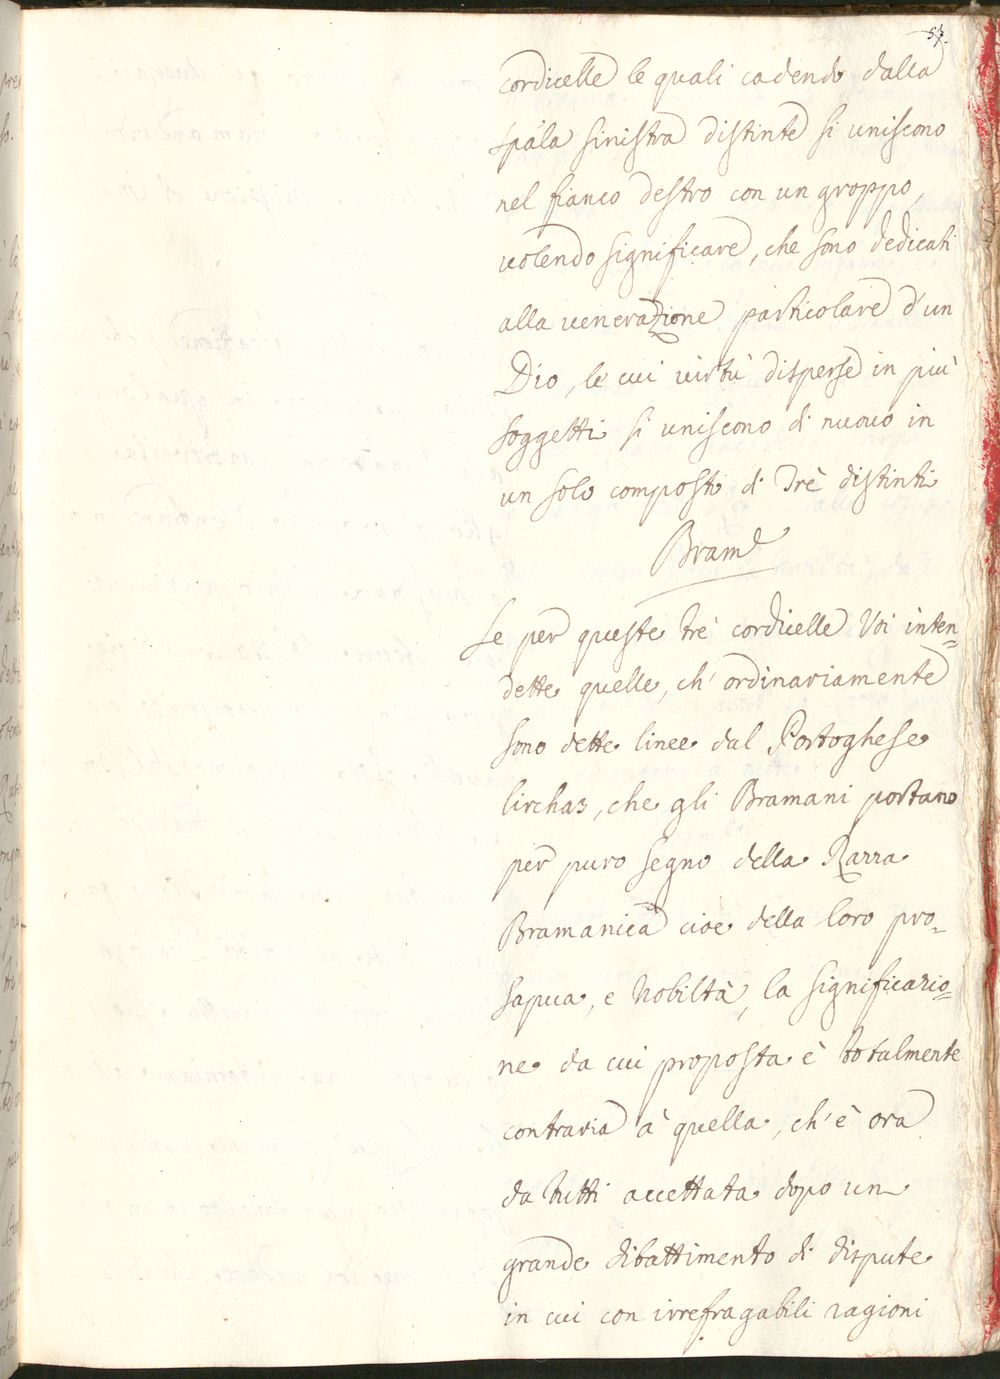 57.
cordicelle le quali cadendo dalla
spala sinistra distinte si uniscono
nel fianco destro con un groppo,
volendo significare, che sono dedicati
alla venerazione particolare d'un
Dio, le cui virtù disperse in più
soggetti si uniscono di nuovo in
un solo composti di trè distinti
Brame
Se per queste trè cordicelle Voi inten=
dette quelle, ch'ordinariamente
sono dette linee dal Portoghese
lirchas, che gli Bramani portano
per puro segno della Razza
Bramanica cioe della loro pro=
sapua, e Nobiltà, la significazio=
ne da cui proposta è totalmente
contraria à quella, ch'è ora
da tutti accettata dopo un
grande dibattimento di dispute
in cui con irrefragabili ragioni